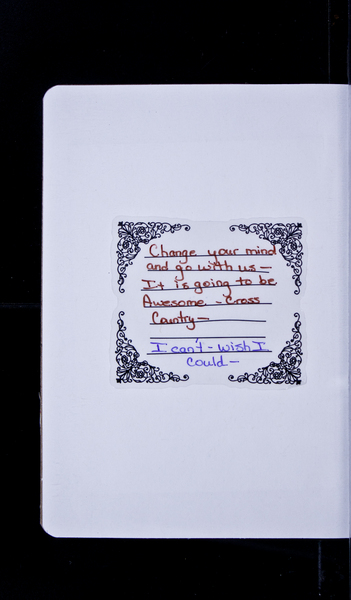 Change your mind
and go with us —
It is going to be
Awesome - Cross
Country —
I can't - wish I
could —